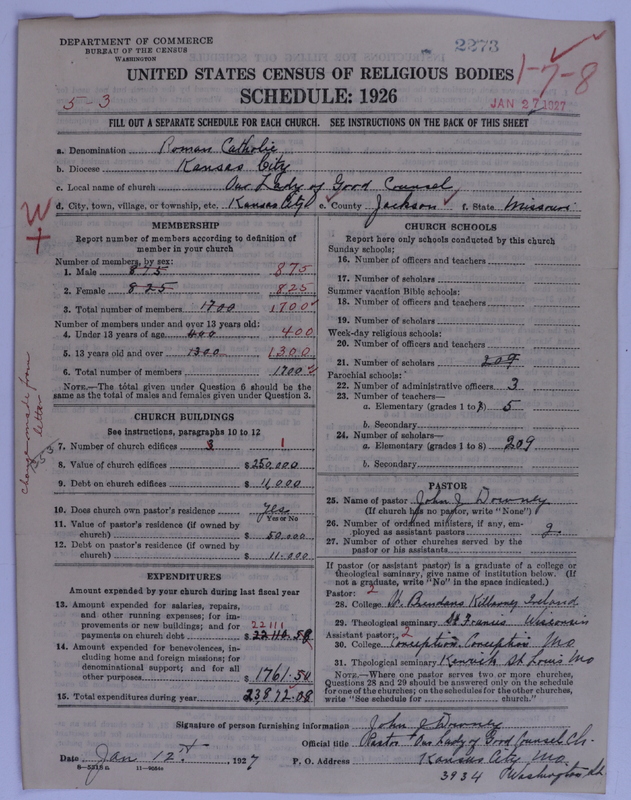 DEPARTMENT OF COMMERCE
BUREAU OF THE CENSUS
WASHINGTON
2273
1-7-8
UNITED STATES CENSUS OF RELIGIOUS BODIES
5-3
SCHEDULE: 1926
JAN 27 1927
FILL OUT A SEPARATE SCHEDULE FOR EACH CHURCH. SEE INSTRUCTIONS ON THE BACK OF THIS SHEET
a. Denomination Roman Catholic
b. Diocese Kansas City
c. Local name of church Our Lady of Good Counsel
d. City, town, village, or township, etc. Kansas City e. County Jackson f. State Missouri
MEMBERSHIP
Report number of members according to definition of
member in your church
Number of members, by sex:
1. Male 875 875
2. Female 825 825
3. Total number of members 1700 1700
Number of members under and over 13 years old:
4. Under 13 years of age 400 400
5. 13 years old and over 1300 1300
6. Total number of members 1700
NOTE.—The total given under Question 6 should be the
same as the total of males and females given under Question 3.
change made from
letter
CHURCH BUILDINGS
See instructions, paragraphs 10 to 12
7. Number of church edifices 3 1
8. Value of church edifices $250,000
9. Debt on church edifices $11,000
10. Does church own pastor's residence? Yes
Yes or No
11. Value of pastor's residence (if owned by
church) $50,000
12. Debt on pastor's residence (if owned by
church) $11,000
EXPENDITURES
Amount expended by church during last fiscal year
13. Amount expended for salaries, repairs,
and other running expenses; for im-
provements or new buildings; and for 22111
payments on church debt $22110.58
14. Amount expended for benevolences, in-
cluding home and foreign missions; for
denominational support; and for all
other purposes $1761.50
15. Total expenditures during year 23,872.08
CHURCH SCHOOLS
Report here only schools conducted by this church
Sunday schools:
16. Number of officers and teachers
17. Number of scholars
Summer vacation Bible schools:
18. Number of officers and teachers
19. Number of scholars
Week-day religious schools:
20. Number of officers and teachers
21. Number of scholars 209
Parochial schools:
22. Number of administrative officers 3
23. Number of teachers—
a. Elementary (grades 1 to 8) 5
b. Secondary
24. Number of scholars—
a. Elementary (grades 1 to 8) 209
b. Secondary
PASTOR
25. Name of pastor John J Downey
(If church has no pastor, write "None")
26. Number of ordained ministers, if any, em-
ployed as assistant pastors 2
27. Number of other churches served by the
pastor or his assistants
If pastor (or assistant pastor) is a graduate of a college or
theological seminary, give name of institution below. (If
not a graduate, write "No" in the space indicated.)
Pastor: 2
28. College St. Brendans Killarney Ireland
29. Theological seminary St Francis Wisconsin
Assistant pastor: 2
30. College Conception Conception Mo
31. Theological seminary Kenrick St Louis Mo
NOTE.—Where one pastor serves two or more churches,
Questions 28 and 29 should be answered only on the schedule
for one of the churches; on the schedules for the other churches,
write "See schedule for church."
Signature of person furnishing information John J Downey
Official title Pastor Our Lady of Good Counsel Ch.
Date Jan 12th, 1927 P. O. Address Kansas City Mo.
8—5218a 11—9054a 3934 Washington St.